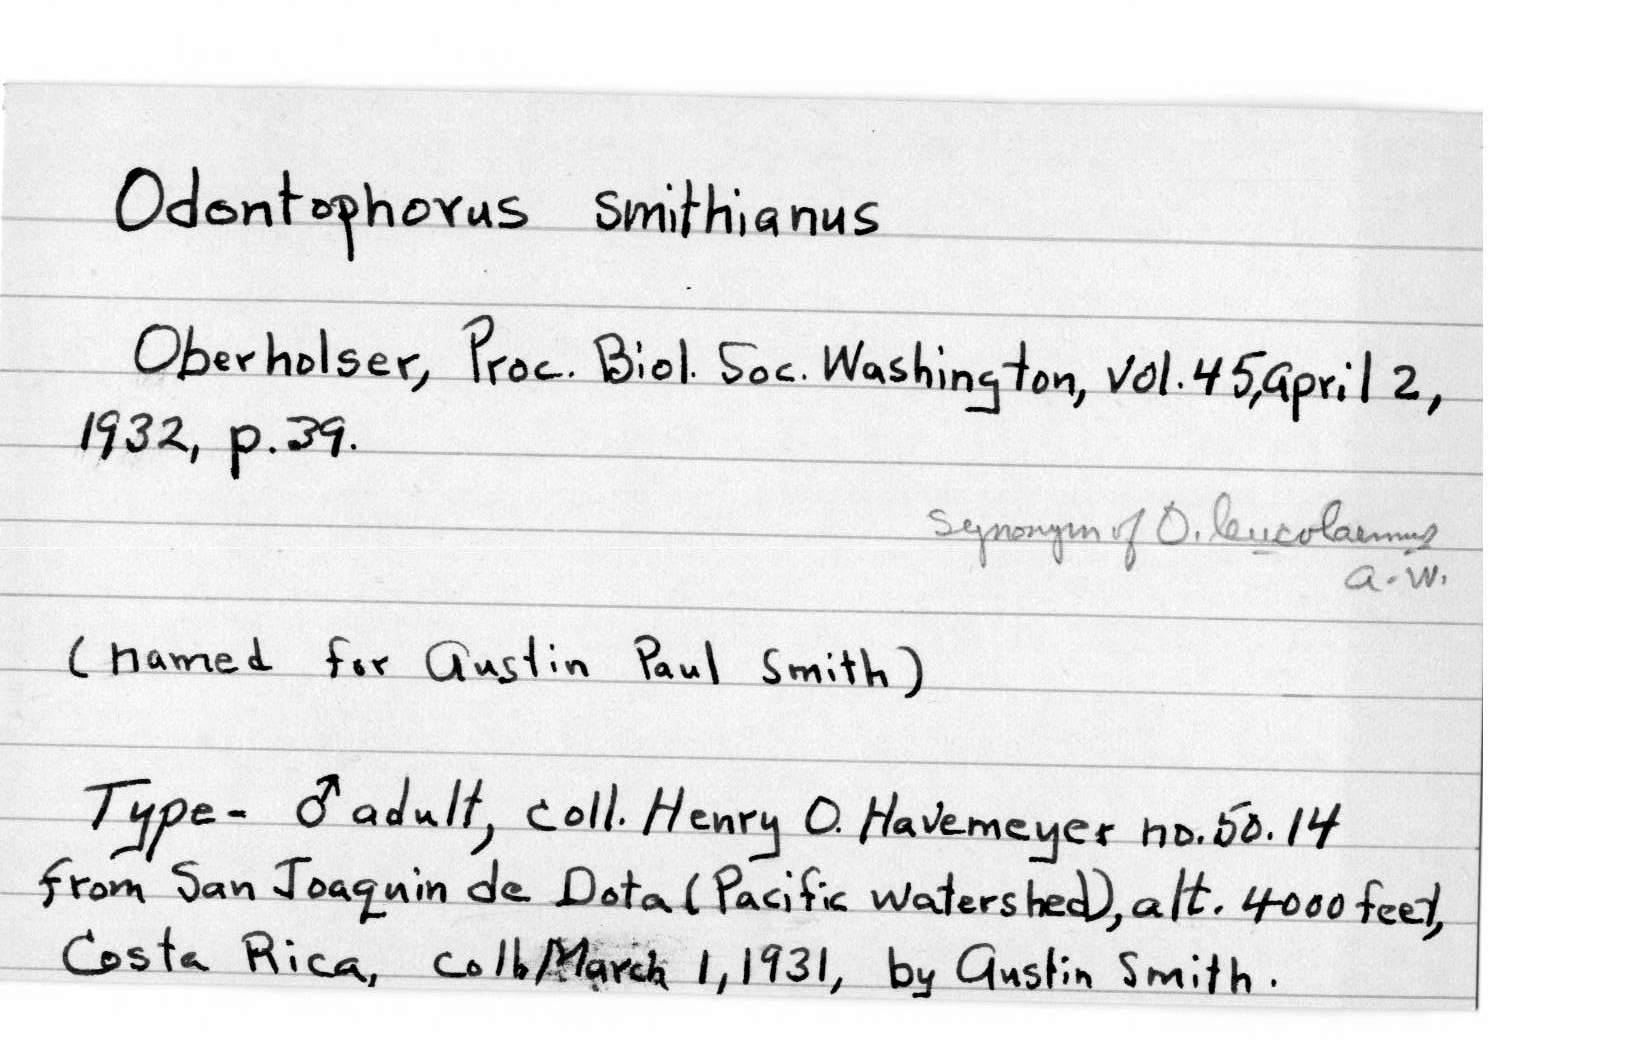 Odontophorus smithianus
Oberholser, Proc. Biol. Soc. Washington, vol. 45, April 2,
1932, p. 39.
Synonym of O. leucolaemus
A. W.
(named for Austin Paul Smith)
Type- ♂ adult, coll. Henry O. Havemeyer no. 50.14
from San Joaquin de Dota (Pacific watershed), alt. 4000 feet,
Costa Rica, March 1, 1931, by Austin Smith.